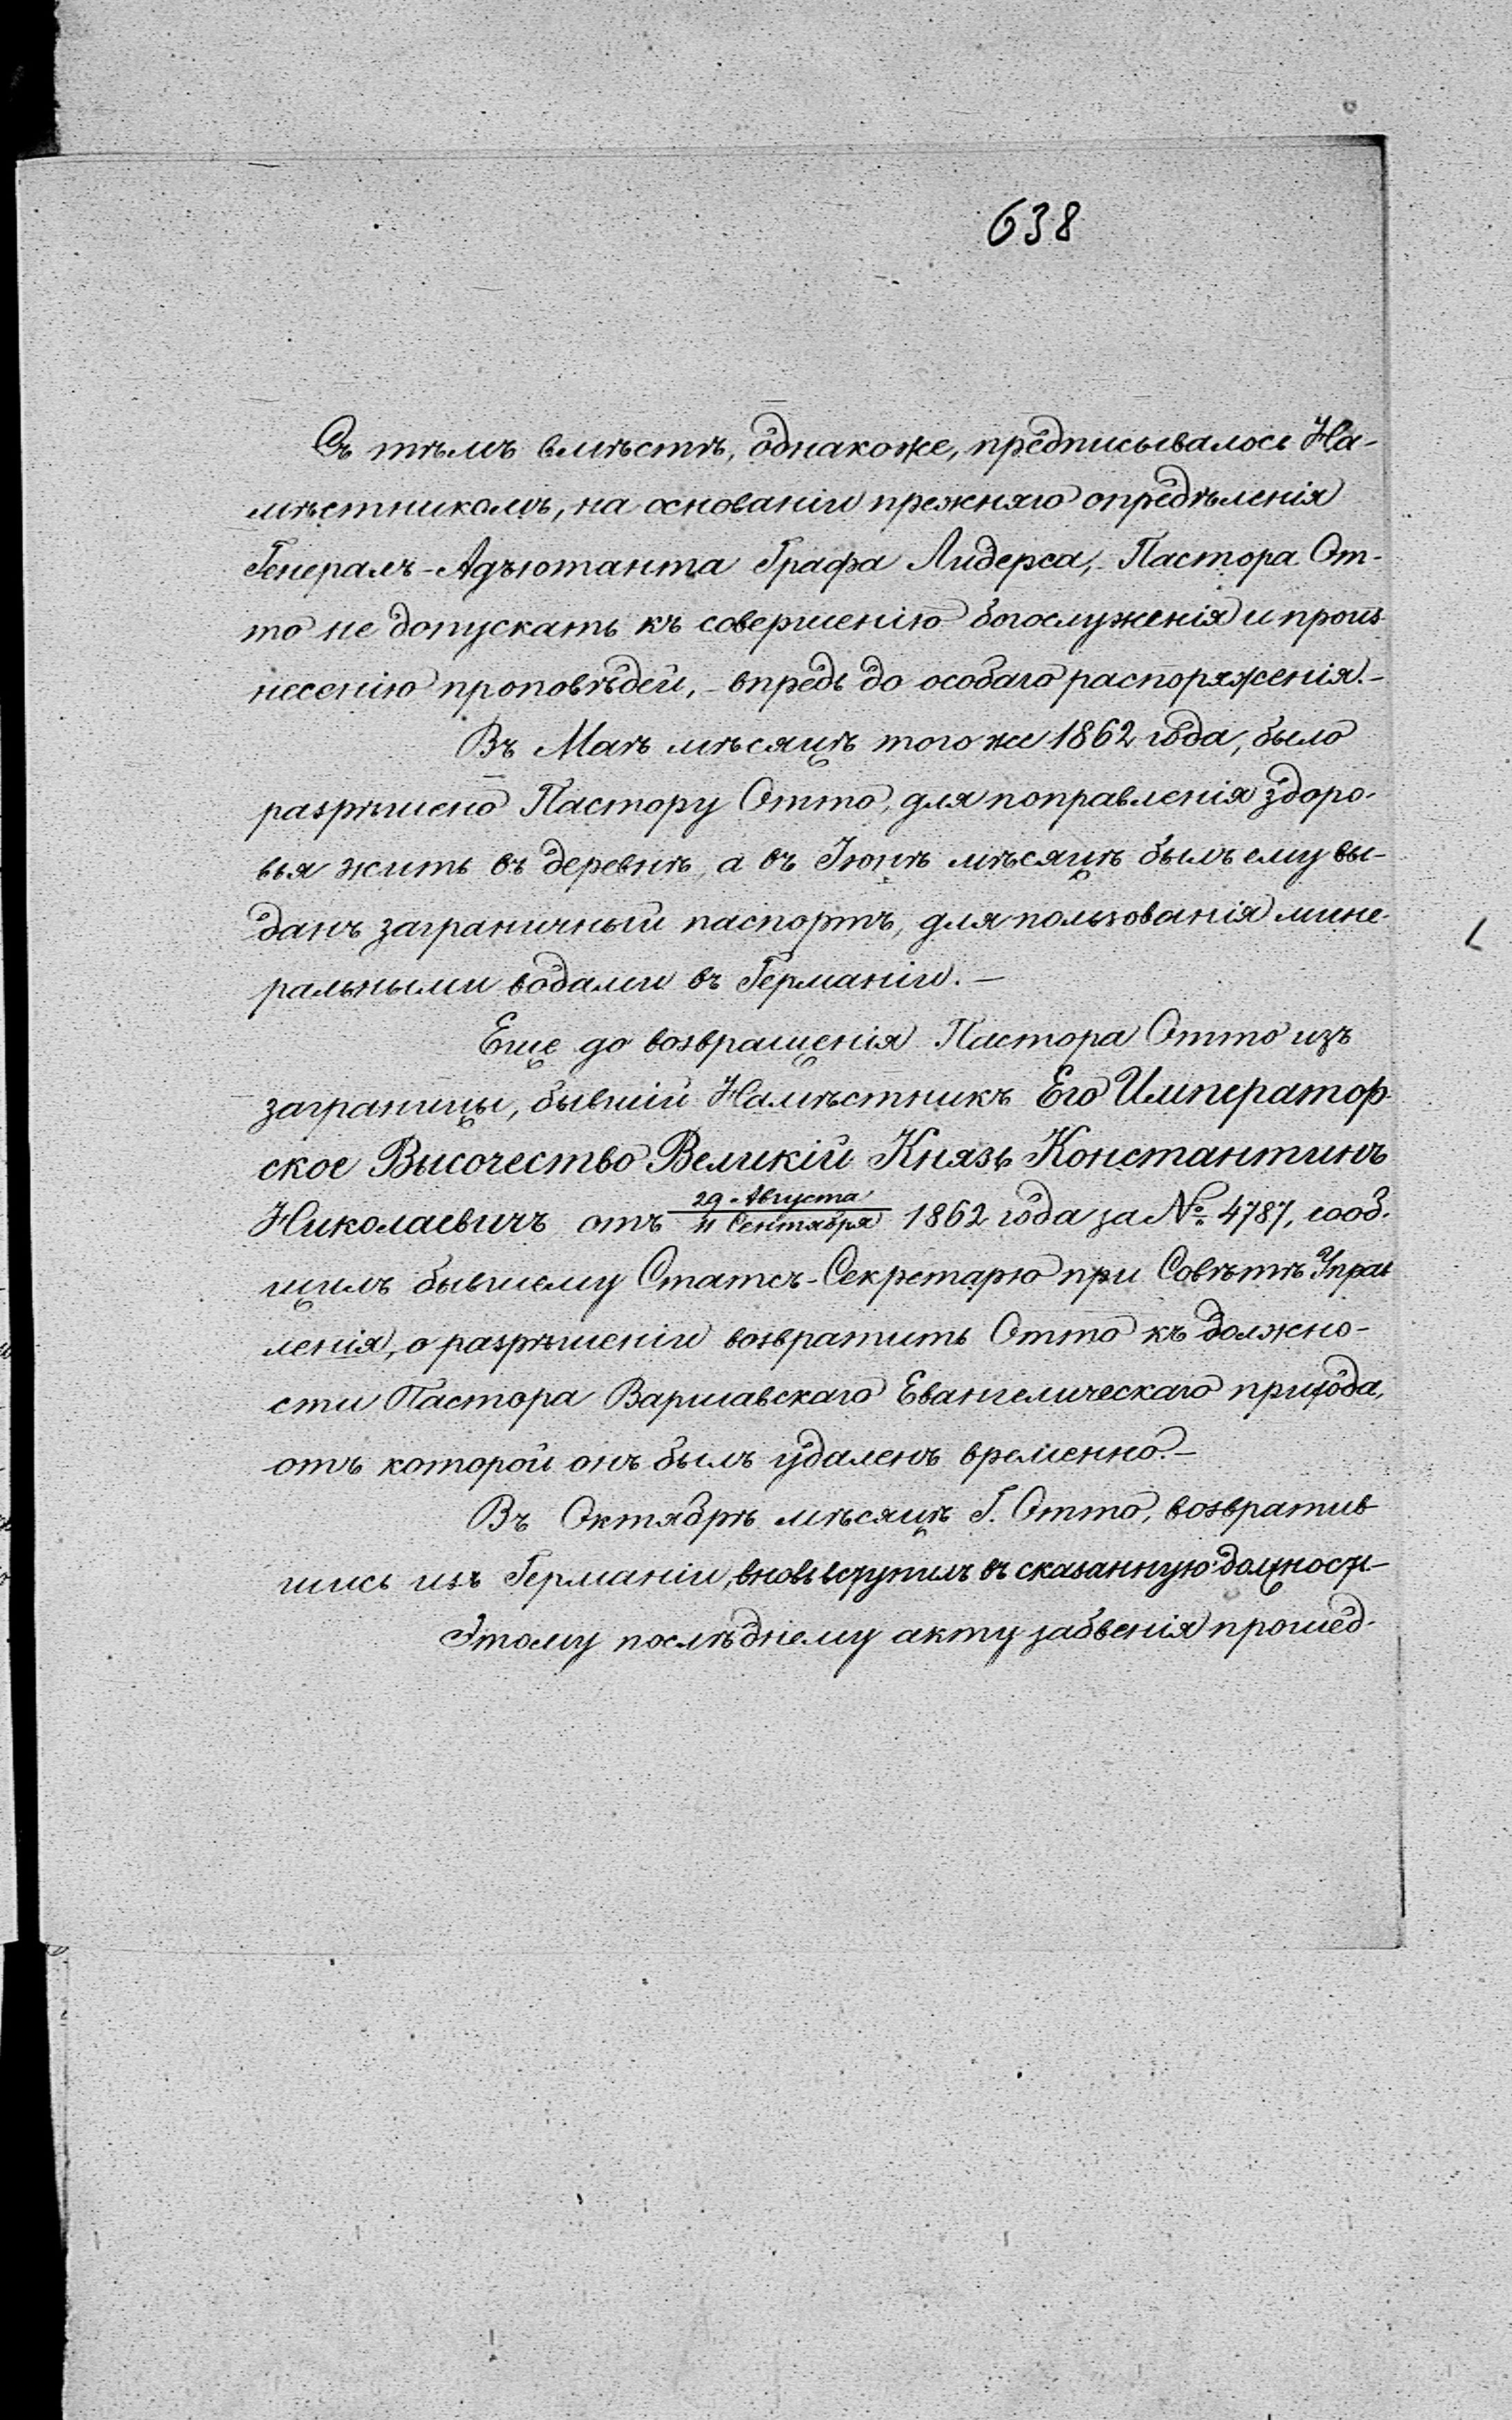 638
Съ тѣмъ вмѣстѣ, однакоже, предписывалось На-
мѣстникомъ, на основаніи прежняго опредѣленія
Генералъ-Адъютанта Графа Лидерса, - Пастора От-
то не допускать къ совершенію богослуженія и произ-
несенію проповѣдей, - впредь до особаго распоряженія. -
Въ Маѣ мѣсяцѣ того же 1862 года, было
разрѣшено Пастору Отто, для поправленія здоро-
вья жить въ деревнѣ, а въ Іюнѣ мѣсяцѣ былъ ему вы-
данъ заграничный паспортъ, для пользованія мине-
ральными водами въ Германіи. -
Еще до возвращенія Пастора Отто изъ
заграницы, бывшій Намѣстникъ Его Император-
ское Высочество Великій Князь Константинъ
Николаевичъ отъ 29 Августа / 11 Сентября 1862 года за № 4787, сооб-
щилъ бывшему Статсъ-Секретарю при Совѣтѣ Управ
ленія, о разрѣшеніи возвратить Отто къ должно-
сти Пастора Варшавскаго Евангелическаго прихода,
отъ которой онъ былъ удаленъ временно. -
Въ Октябрѣ мѣсяцѣ Г. Отто, возвратив
шись изъ Германіи, вновь вступилъ въ сказанную должность. -
Этому послѣднему акту забвенія прошед-